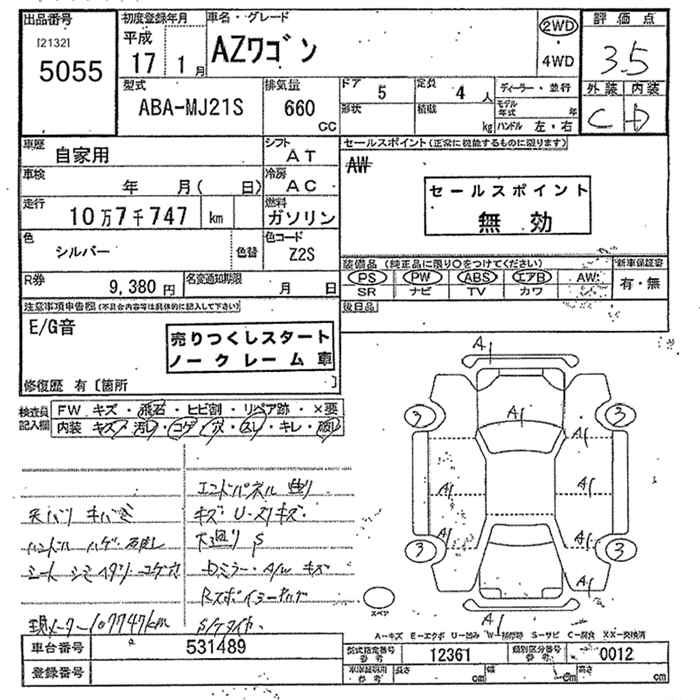 出品番号 初度登録年月 車名・グレード 評価点
[2132]
5055
平成
17 1月 AZワゴン 2WD
・
4WD 3.5
外装 内装
C D
型式 排気量 ドア 定員 ディーラー・並行
ABA-MJ21S 660 CC 5 4 人
形状 積載 kg モデル年式 年
ハンドル 左・右
車歴 自家用 シフト AT
セールスポイント(正常に機能するものに限ります)
AW
車検 年 月( 日) 冷房 AC
セールスポイント
無効
走行 10万7千747 km 燃料 ガソリン
色 シルバー 色替 色コード Z2S
装備品 (純正品に限り○をつけてください) 新車保証書
PS PW ABS エアB AW
SR ナビ TV カワ 有・無
R券 9,380円 名変通知期限 月 日
後日品
注意事項申告欄(不具合内容等は具体的に記入して下さい)
E/G音
売りつくしスタート
ノークレーム車
修復歴 有〔箇所 〕
検査員記入欄 FW キズ・飛石・ヒビ割・リペア跡・×要
内装 キズ・汚レ・コゲ・穴・スレ・キレ・破レ
A1
A1
3 3
A1 A1
A1 A1
3 3
A1
スペア
エンドパネル曲り
天バリ キバミ キズ U・スリキズ
ハンドル ハゲ
シート シミ
現メーター107747km
A-キズ E-エクボ U-凹み W-補修跡 S-サビ C-腐食 XX-交換済
車台番号 531489
型式指定番号 参考 12361 類別区分番号 参考 0012
登録番号
車庫証明用 参考 長さ cm 幅 cm 高さ cm